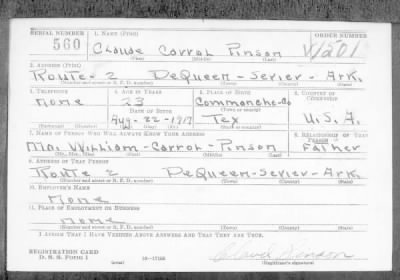 SERIAL NUMBER 1. NAME (Print) ORDER NUMBER
560 Claude Carrol Pinson V1501
(First) (Middle) (Last)
2. ADDRESS (Print)
Route-2 DeQueen-Sevier-Ark.
(Number and street or R. F. D. number) (Town) (County) (State)
3. TELEPHONE 4. AGE IN YEARS 5. PLACE OF BIRTH 6. COUNTRY OF CITIZENSHIP
None 23 Commanche-Co
DATE OF BIRTH (Town or county)
Aug-22-1917 Tex U.S.A.
(Exchange) (Number) (Mo.) (Day) (Yr.) (State or country)
7. NAME OF PERSON WHO WILL ALWAYS KNOW YOUR ADDRESS 8. RELATIONSHIP OF THAT PERSON
Mr. William-Carrol-Pinson Father
(Mr., Mrs., Miss) (First) (Middle) (Last)
9. ADDRESS OF THAT PERSON
Route 2 DeQueen-Sevier-Ark
(Number and street or R. F. D. number) (Town) (County) (State)
10. EMPLOYER'S NAME
None
11. PLACE OF EMPLOYMENT OR BUSINESS
None
(Number and street or R. F. D. number) (Town) (County) (State)
I AFFIRM THAT I HAVE VERIFIED ABOVE ANSWERS AND THAT THEY ARE TRUE.
REGISTRATION CARD
D. S. S. Form 1 (over) 16-17105 (Registrant's signature)